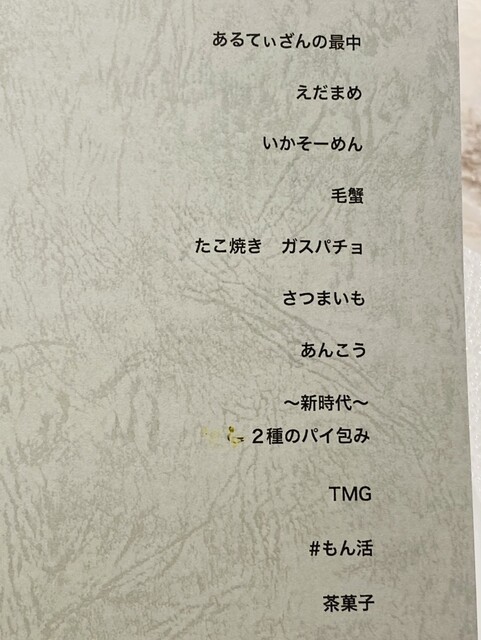 あるてぃざんの最中
えだまめ
いかそーめん
毛蟹
たこ焼き　ガスパチョ
さつまいも
あんこう
〜新時代〜
２種のパイ包み
TMG
#もん活
茶菓子